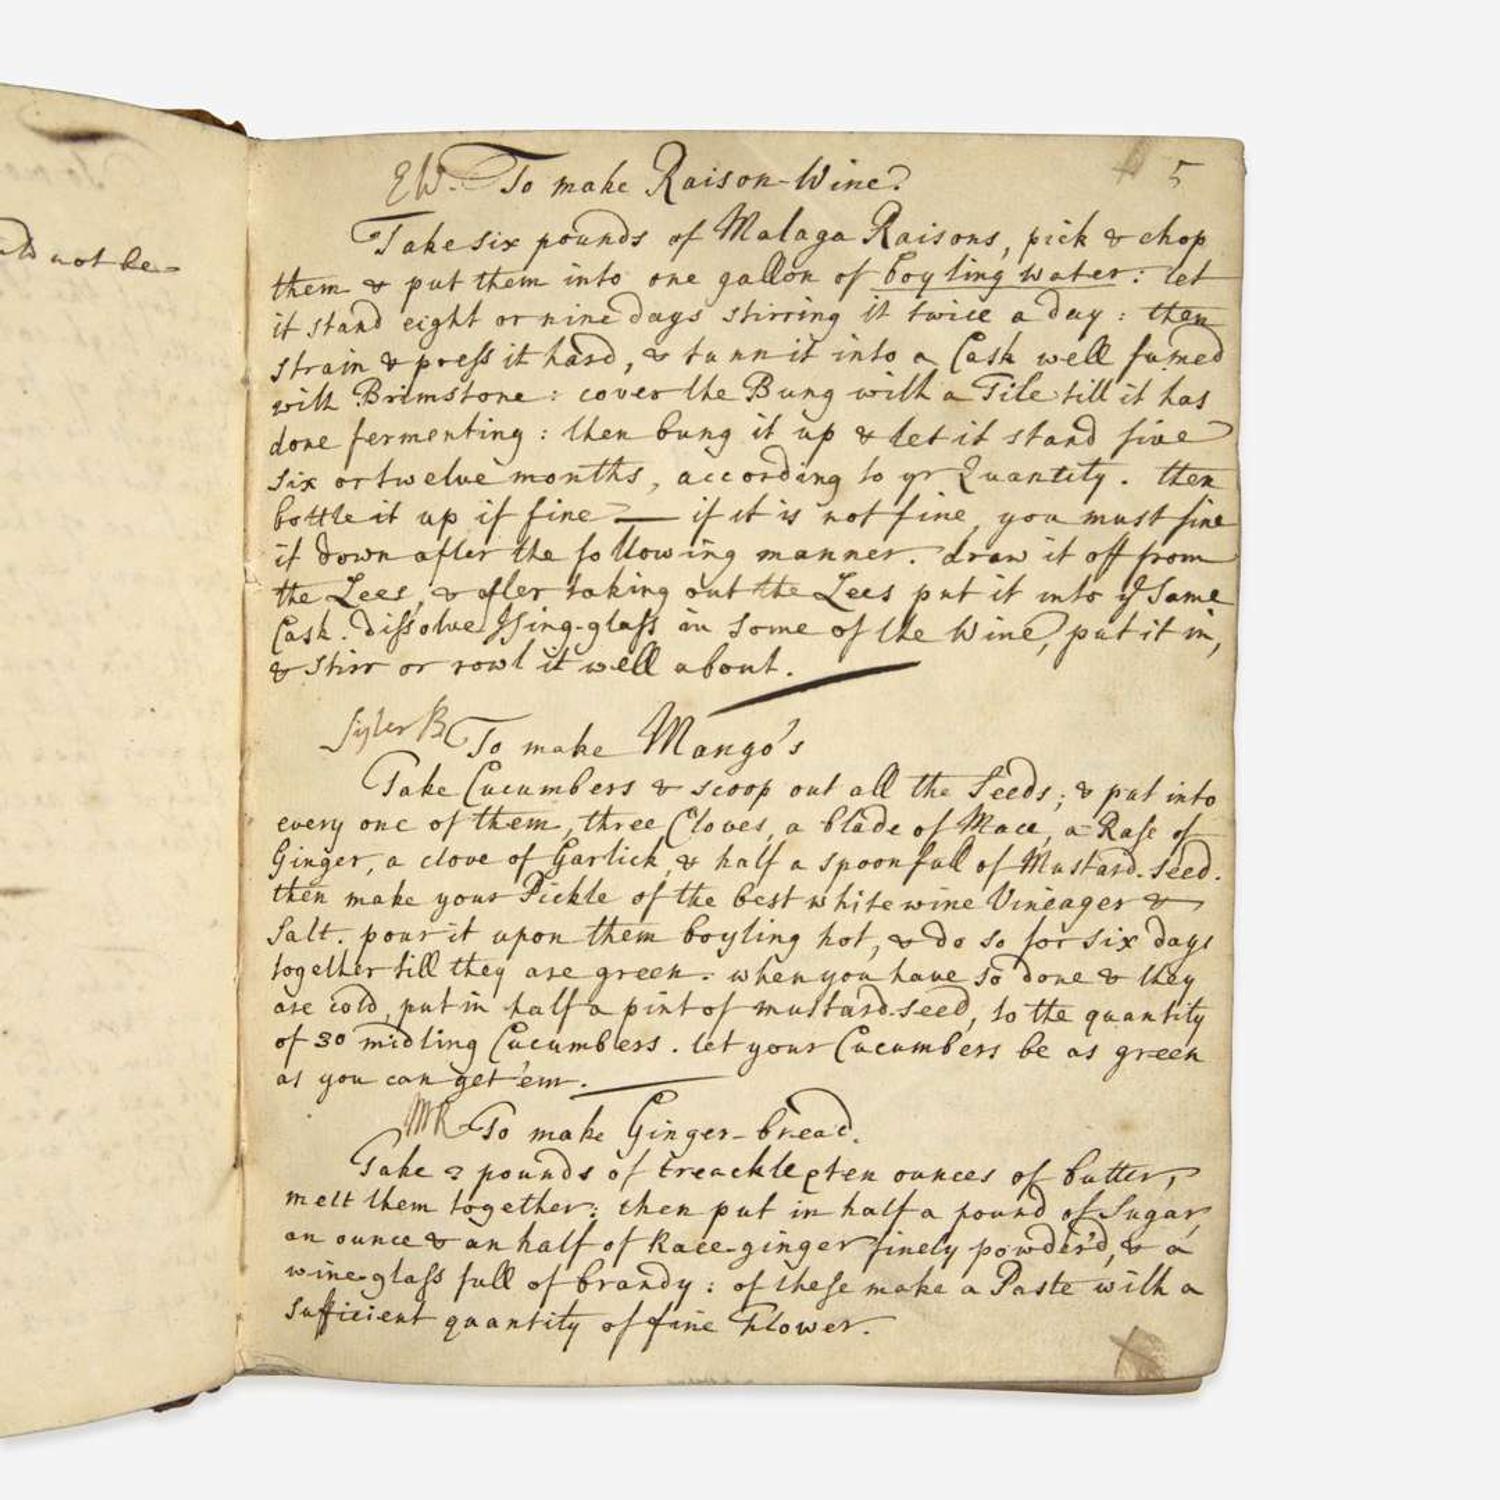 not be
5
EW. To make Raison-Wine.
Take six pounds of Malaga Raisons, pick & chop
them & put them into one gallon of boyling water: let
it stand eight or nine days stirring it twice a day: then
strain & press it hard, & tunn it into a Cask well fumed
with Brimstone: cover the Bung with a Tile till it has
done fermenting: then bung it up & let it stand five
six or twelve months, according to yr Quantity. then
bottle it up if fine — if it is not fine, you must fine
it down after the following manner. draw it off from
the Lees, & after taking out the Lees put it into ye same
Cask. dissolve Ising-glass in some of the Wine, put it in,
& stirr or rowl it well about.
Syler B To make Mango's
Take Cucumbers & scoop out all the seeds; & put into
every one of them, three Cloves, a blade of Mace, a Rase of
Ginger, a clove of Garlick, & half a spoonfull of Mustard-seed.
then make your Pickle of the best white wine Vineager &
Salt. pour it upon them boyling hot, & do so for six days
together till they are green. when you have so done & they
are cold, put in half a pint of mustard-seed, to the quantity
of 30 midling Cucumbers. let your Cucumbers be as green
as you can get 'em.
MR To make Ginger-bread.
Take 2 pounds of treackle & ten ounces of butter,
melt them together: then put in half a pound of Sugar,
an ounce & an half of Race-ginger finely powder'd, & a
wine-glass full of brandy: of these make a Paste with a
sufficient quantity of fine Flower.